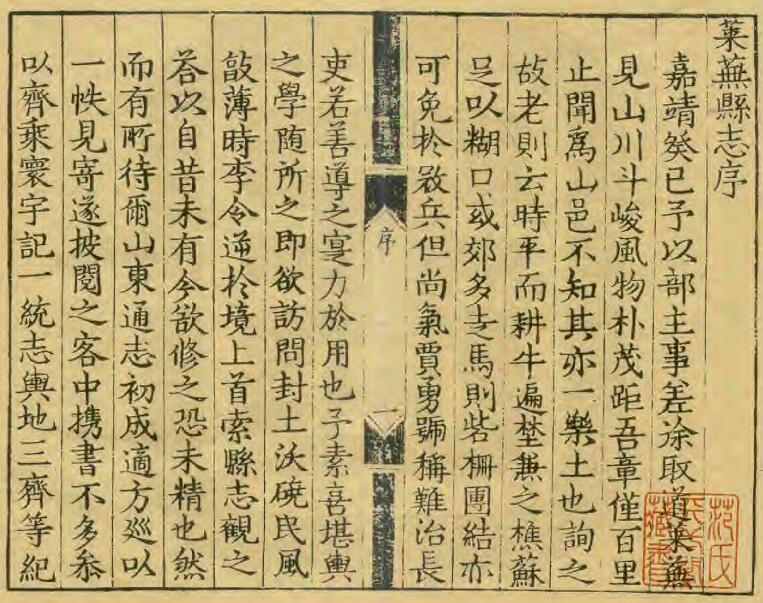 萊蕪縣志序
嘉靖癸巳予以部主事差涂取道萊蕪
見山川斗峻風物朴茂距吾章僅百里
止聞爲山邑不知其亦一樂土也詢之
故老則云時平而耕牛遍埜兼之樵蘇
足以糊口或郊多走馬則砦柵團結亦
可免於兵但尚氣賈勇號稱難治長
序
一
吏若善導之寔力於用也予素喜堪輿
之學随所之即欲訪問封土沃磽民風
敦薄時李令逆於境上首索縣志觀之
荅以自昔未有今欲修之恐未精也然
而有所待爾山東通志初成適方巡以
一帙見寄遂披閱之客中携書不多叅
以齊乘寰宇記一統志輿地三齊等紀
范氏
藏書